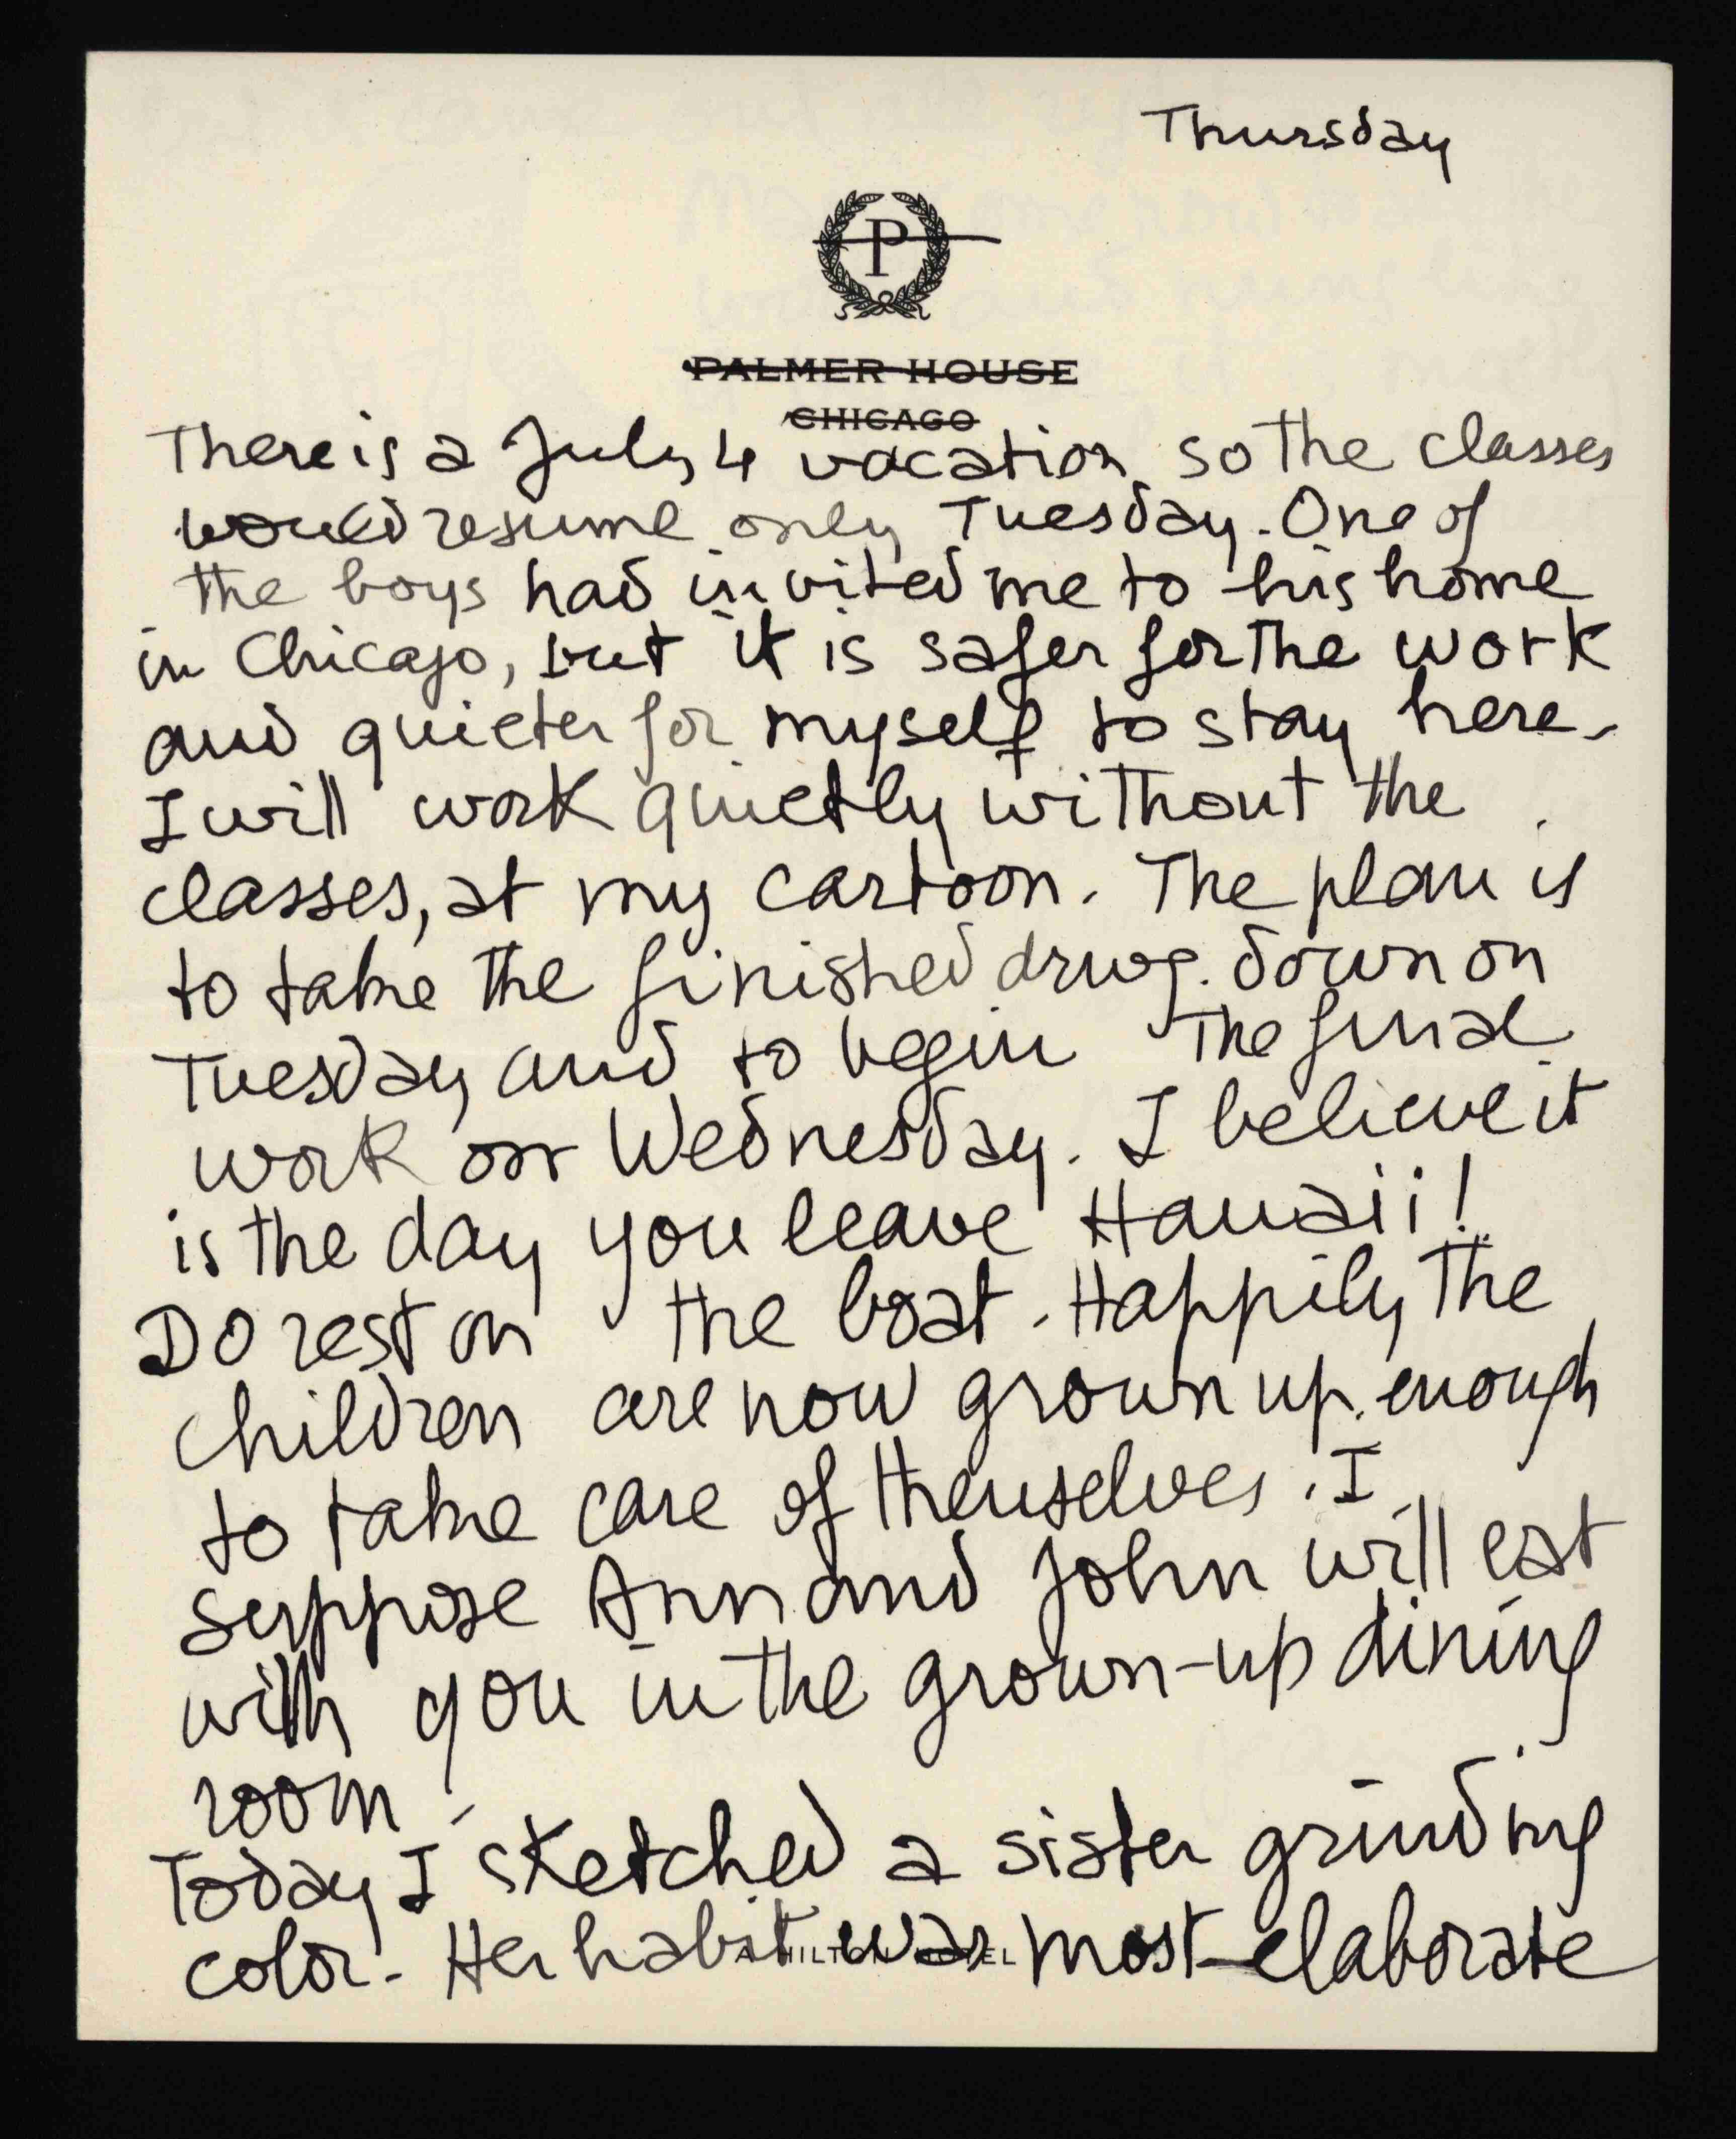 Thursday
P
PALMER HOUSE
CHICAGO
There is a July 4 vacation, so the classes
would resume only Tuesday. One of
the boys had invited me to his home
in Chicago, but it is safer for the work
and quieter for myself to stay here.
I will work quietly without the
classes, at my cartoon. The plan is
to take the finished drwg. down on
Tuesday and to begin the final
work on Wednesday. I believe it
is the day you leave Hawaii!
Do rest on the boat. Happily the
children are now grown up enough
to take care of themselves. I
suppose Ann and John will eat
with you in the grown-up dining
room.
Today I sketched a sister grinding
color. Her habit was most elaborate
A HILTON HOTEL